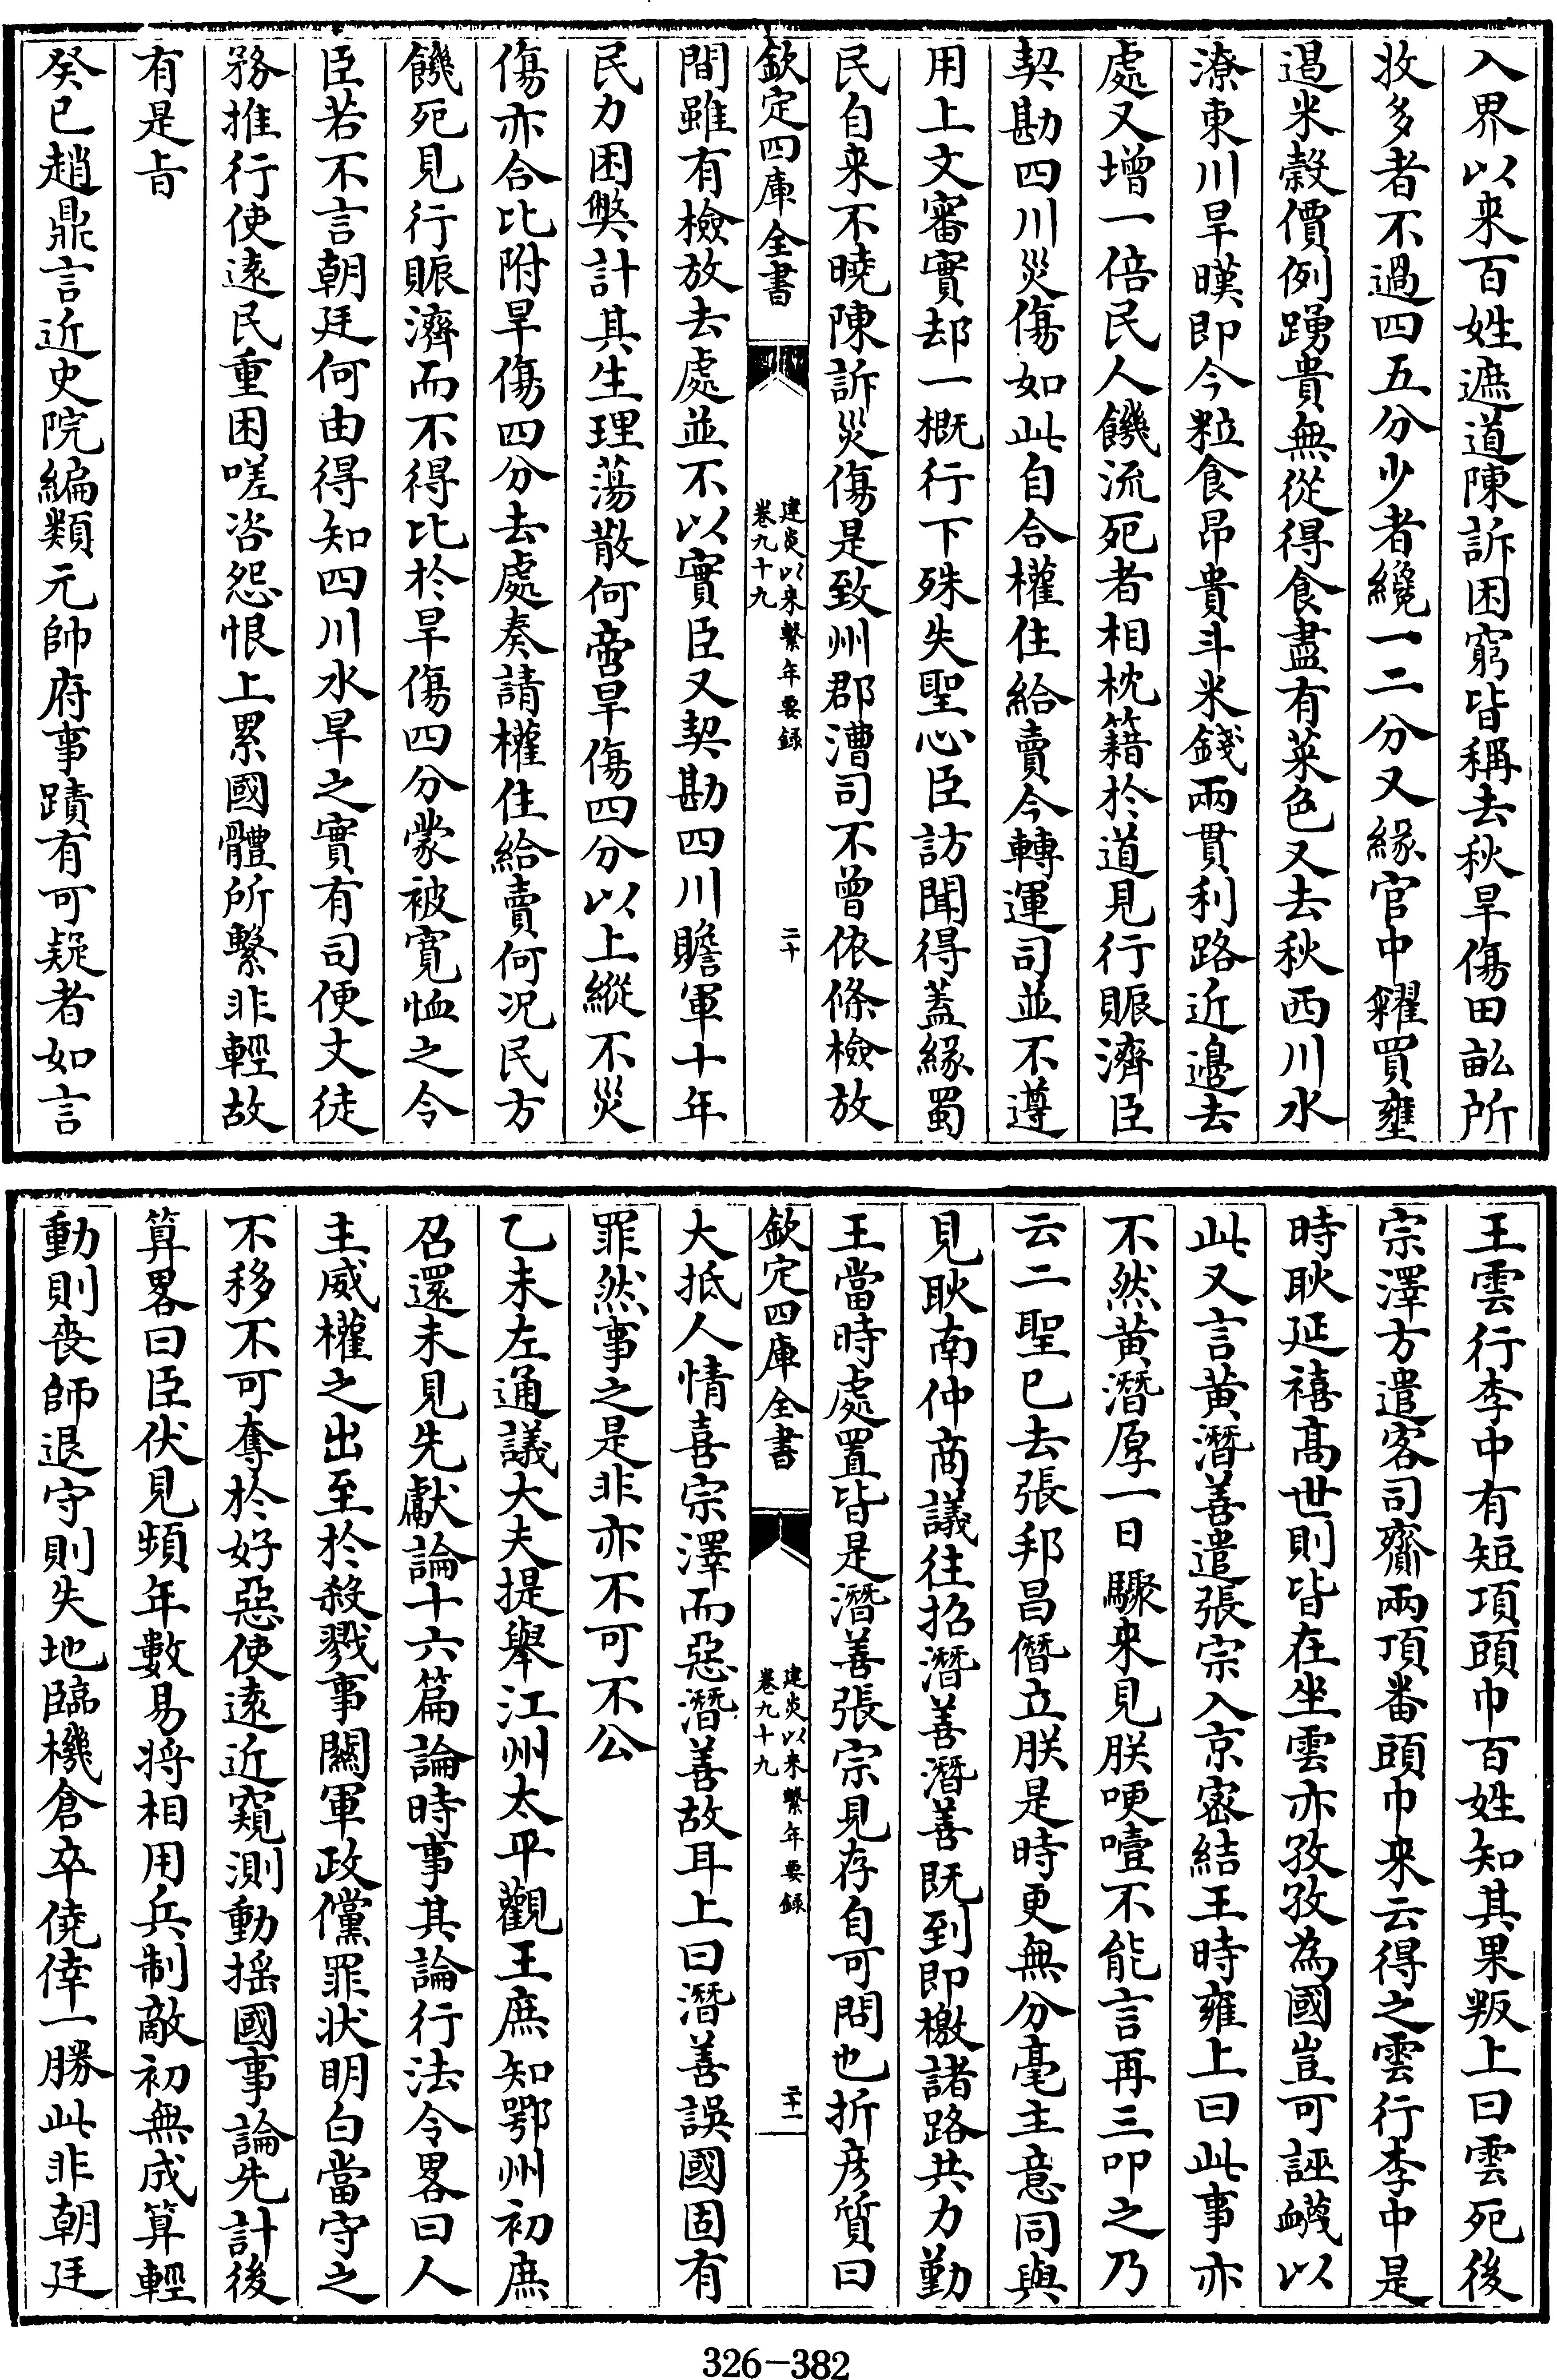 入界以来百姓遮道陳訴困窮皆稱去秋旱傷田畆所
收多者不過四五分少者纔一二分又緣官中糴買壅
遏米穀價例踴貴無從得食盡有菜色又去秋西川水
潦東川旱暵即今粒食昂貴斗米錢兩貫利路近邉去
處又增一倍民人饑流死者相枕籍於道見行賑濟臣
契勘四川災傷如此自合權住給賣今轉運司並不遵
用上文審實却一概行下殊失聖心臣訪聞得蓋緣蜀
民自来不曉陳訴災傷是致州郡漕司不曾依條檢放
欽定四庫全書
建炎以来繫年要録
卷九十九
二十
間雖有檢放去處並不以實臣又契勘四川贍軍十年
民力困弊計其生理蕩散何啻旱傷四分以上縱不災
傷亦合比附旱傷四分去處奏請權住給賣何况民方
饑死見行賑濟而不得比於旱傷四分蒙被寛恤之令
臣若不言朝廷何由得知四川水旱之實有司便文徒
務推行使逺民重困嗟咨怨恨上累國體所繫非輕故
有是㫖
癸已趙鼎言近史院編類元帥府事蹟有可疑者如言
王雲行李中有短項頭巾百姓知其果叛上曰雲死後
宗澤方遣客司齎兩頂番頭巾来云得之雲行李中是
時耿延禧髙世則皆在坐雲亦孜孜為國豈可誣衊以
此又言黄潛善遣張宗入京宻結王時雍上曰此事亦
不然黄潛厚一日驟来見朕哽噎不能言再三叩之乃
云二聖已去張邦昌僭立朕是時更無分毫主意同與
見耿南仲商議往招潛善潛善既到即檄諸路共力勤
王當時處置皆是潛善張宗見存自可問也折彦質曰
欽定四庫全書
建炎以来繫年要録
卷九十九
二十一
大抵人情喜宗澤而惡潛善故耳上曰潛善誤國固有
罪然事之是非亦不可不公
乙未左通議大夫提舉江州太平觀王庶知鄂州初庶
召還未見先獻論十六篇論時事其論行法令畧曰人
主威權之出至於殺戮事闗軍政儻罪状明白當守之
不移不可奪於好惡使逺近窺測動揺國事論先計後
算畧曰臣伏見頻年數易將相用兵制敵初無成算輕
動則丧師退守則失地臨機倉卒僥倖一勝此非朝廷
326-382